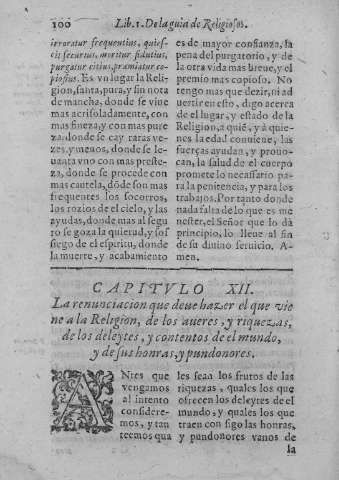 100 Lib. 1. De la guia de Religiosos.
irroratur frequentius, quies-
cit securius, moritur fidutius,
purgatur citius, præmiatur co-
piosius. Es vn lugar la Reli-
gion, santa, pura, y sin nota
de mancha, donde se viue
mas acrisoladamente, con
mas fineza, y con mas pure
za. donde se cay raras ve-
zes, y menos, donde se le-
uanta vno con mas preste-
za, donde se procede con
mas cautela, dõde son mas
frequentes los socorros,
los rozios de el cielo, y las
ayudas, donde mas al segu
ro se goza la quietud, y sos
siego de el espiritu, donde
la muerte, y acabamiento
es de mayor confianza, la
pena del purgatorio, y de
la otra vida mas breue, y el
premio mas copioso. No
tengo mas que dezir, ni ad
uertir en esto, digo acerca
de el lugar, y estado de la
Religion, a quié, y à quie-
nes la edad conuiene, las
fuerças ayudan, y prouo-
can, la salud de el cuerpo
promete lo necessario pa-
ra la penitencia, y para los
trabajos. Por tanto donde
nada falta de lo que es me
nester, el Señor que lo dà
principio, lo lleue al fin
de su diuino seruicio. A-
men.
CAPITVLO XII.
La renunciacion que deue hazer el que vie
ne a la Religion, de los aueres, y riquezas,
de los deleytes, y contentos de el mundo,
y de sus honras, y pundonores.
ANtes que
vengamos
al intento
considere-
mos, y tan
teemos qua
les sean los frutos de las
riquezas, quales los que
ofrecen los deleytes de el
mundo, y quales los que
traen con sigo las honras,
y pundonores vanos de
la